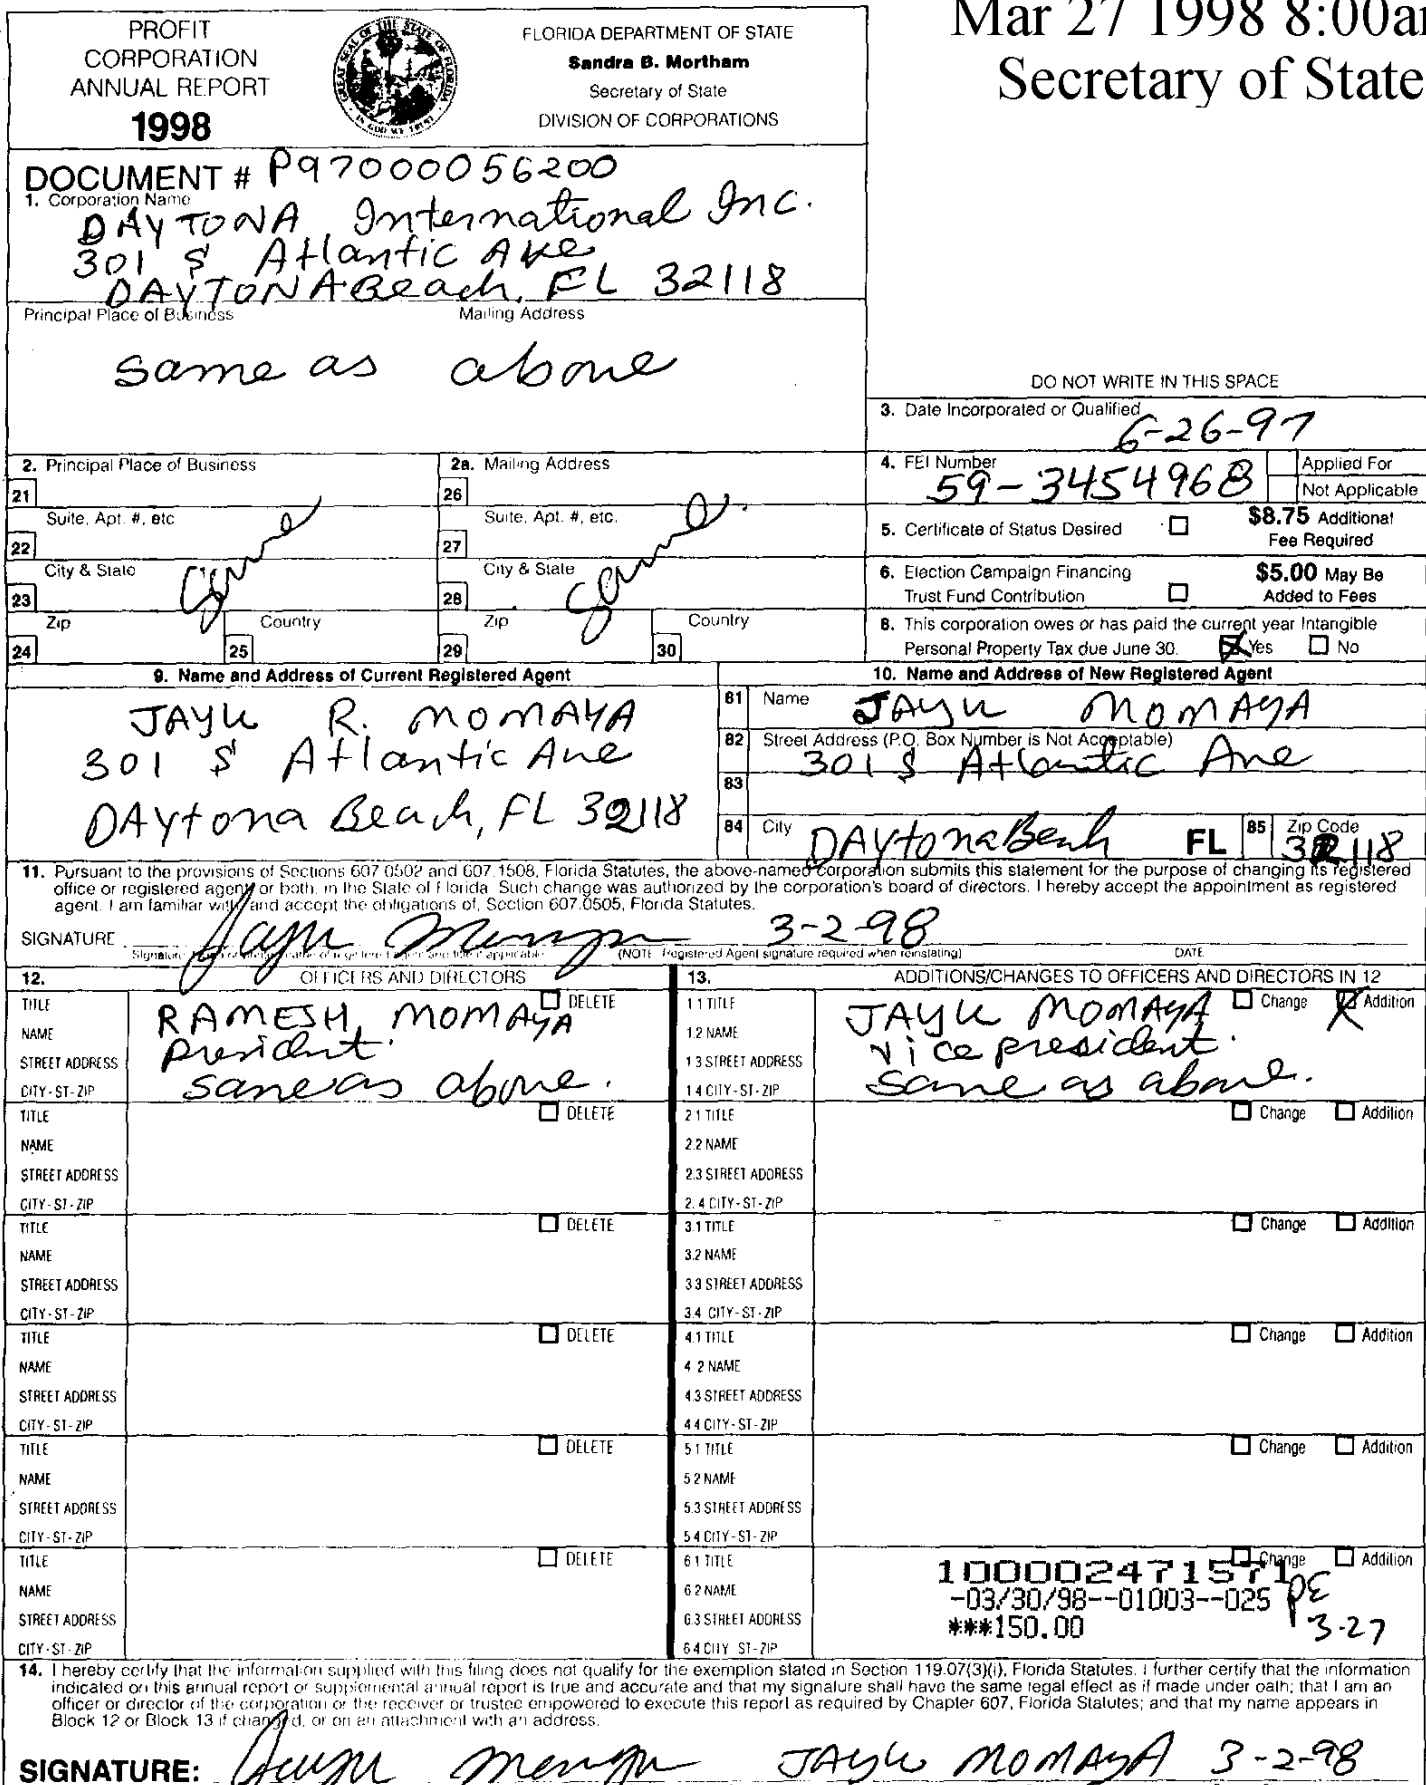 PROFIT
CORPORATION
ANNUAL REPORT
1998
GREAT SEAL OF THE STATE OF FLORIDA
IN GOD WE TRUST
FLORIDA DEPARTMENT OF STATE
Sandra B. Mortham
Secretary of State
DIVISION OF CORPORATIONS
Mar 27 1998 8:00a
Secretary of State
DOCUMENT # P97000056200
1. Corporation Name
DAYTONA International Inc.
301 S Atlantic Ave
DAYTONA Beach, FL 32118
Principal Place of Business Mailing Address
same as above
DO NOT WRITE IN THIS SPACE
3. Date Incorporated or Qualified
6-26-97
2. Principal Place of Business
21
Suite, Apt. #, etc
22
City & State
23
Zip Country
24 25
same
2a. Mailing Address
26
Suite, Apt. #, etc.
27
City & State
28
Zip Country
29 30
same
4. FEI Number
59-3454968
Applied For
Not Applicable
5. Certificate of Status Desired $8.75 Additional
Fee Required
6. Election Campaign Financing $5.00 May Be
Trust Fund Contribution Added to Fees
8. This corporation owes or has paid the current year Intangible
Personal Property Tax due June 30. Yes No
9. Name and Address of Current Registered Agent
JAYU R. MOMAYA
301 S Atlantic Ave
DAytona Beach, FL 32118
10. Name and Address of New Registered Agent
81 Name JAYU MOMAYA
82 Street Address (P.O. Box Number is Not Acceptable)
301 S Atlantic Ave
83
84 City DAytona Beach FL 85 Zip Code 32118
11. Pursuant to the provisions of Sections 607.0502 and 607.1508, Florida Statutes, the above-named corporation submits this statement for the purpose of changing its registered
office or registered agent, or both, in the State of Florida. Such change was authorized by the corporation's board of directors. I hereby accept the appointment as registered
agent. I am familiar with, and accept the obligations of, Section 607.0505, Florida Statutes.
SIGNATURE 3-2-98
(NOTE Registered Agent signature required when reinstating) DATE
12. OFFICERS AND DIRECTORS
TITLE DELETE
NAME
STREET ADDRESS
CITY-ST-ZIP
RAMESH MOMAYA
President
same as above.
TITLE DELETE
NAME
STREET ADDRESS
CITY-ST-ZIP
TITLE DELETE
NAME
STREET ADDRESS
CITY-ST-ZIP
TITLE DELETE
NAME
STREET ADDRESS
CITY-ST-ZIP
TITLE DELETE
NAME
STREET ADDRESS
CITY-ST-ZIP
TITLE DELETE
NAME
STREET ADDRESS
CITY-ST-ZIP
13. ADDITIONS/CHANGES TO OFFICERS AND DIRECTORS IN 12
1.1 TITLE Change Addition
1.2 NAME
1.3 STREET ADDRESS
1.4 CITY-ST-ZIP
JAYU MOMAYA
vice president.
same as above.
2.1 TITLE Change Addition
2.2 NAME
2.3 STREET ADDRESS
2.4 CITY-ST-ZIP
3.1 TITLE Change Addition
3.2 NAME
3.3 STREET ADDRESS
3.4 CITY-ST-ZIP
4.1 TITLE Change Addition
4.2 NAME
4.3 STREET ADDRESS
4.4 CITY-ST-ZIP
5.1 TITLE Change Addition
5.2 NAME
5.3 STREET ADDRESS
5.4 CITY-ST-ZIP
6.1 TITLE Change Addition
6.2 NAME
6.3 STREET ADDRESS
6.4 CITY-ST-ZIP
100002471571
-03/30/98--01003--025
***150.00
PE
3-27
14. I hereby certify that the information supplied with this filing does not qualify for the exemption stated in Section 119.07(3)(i), Florida Statutes. I further certify that the information
indicated on this annual report or supplemental annual report is true and accurate and that my signature shall have the same legal effect as if made under oath; that I am an
officer or director of the corporation or the receiver or trustee empowered to execute this report as required by Chapter 607, Florida Statutes; and that my name appears in
Block 12 or Block 13 if changed, or on an attachment with an address.
SIGNATURE: JAYU MOMAYA 3-2-98